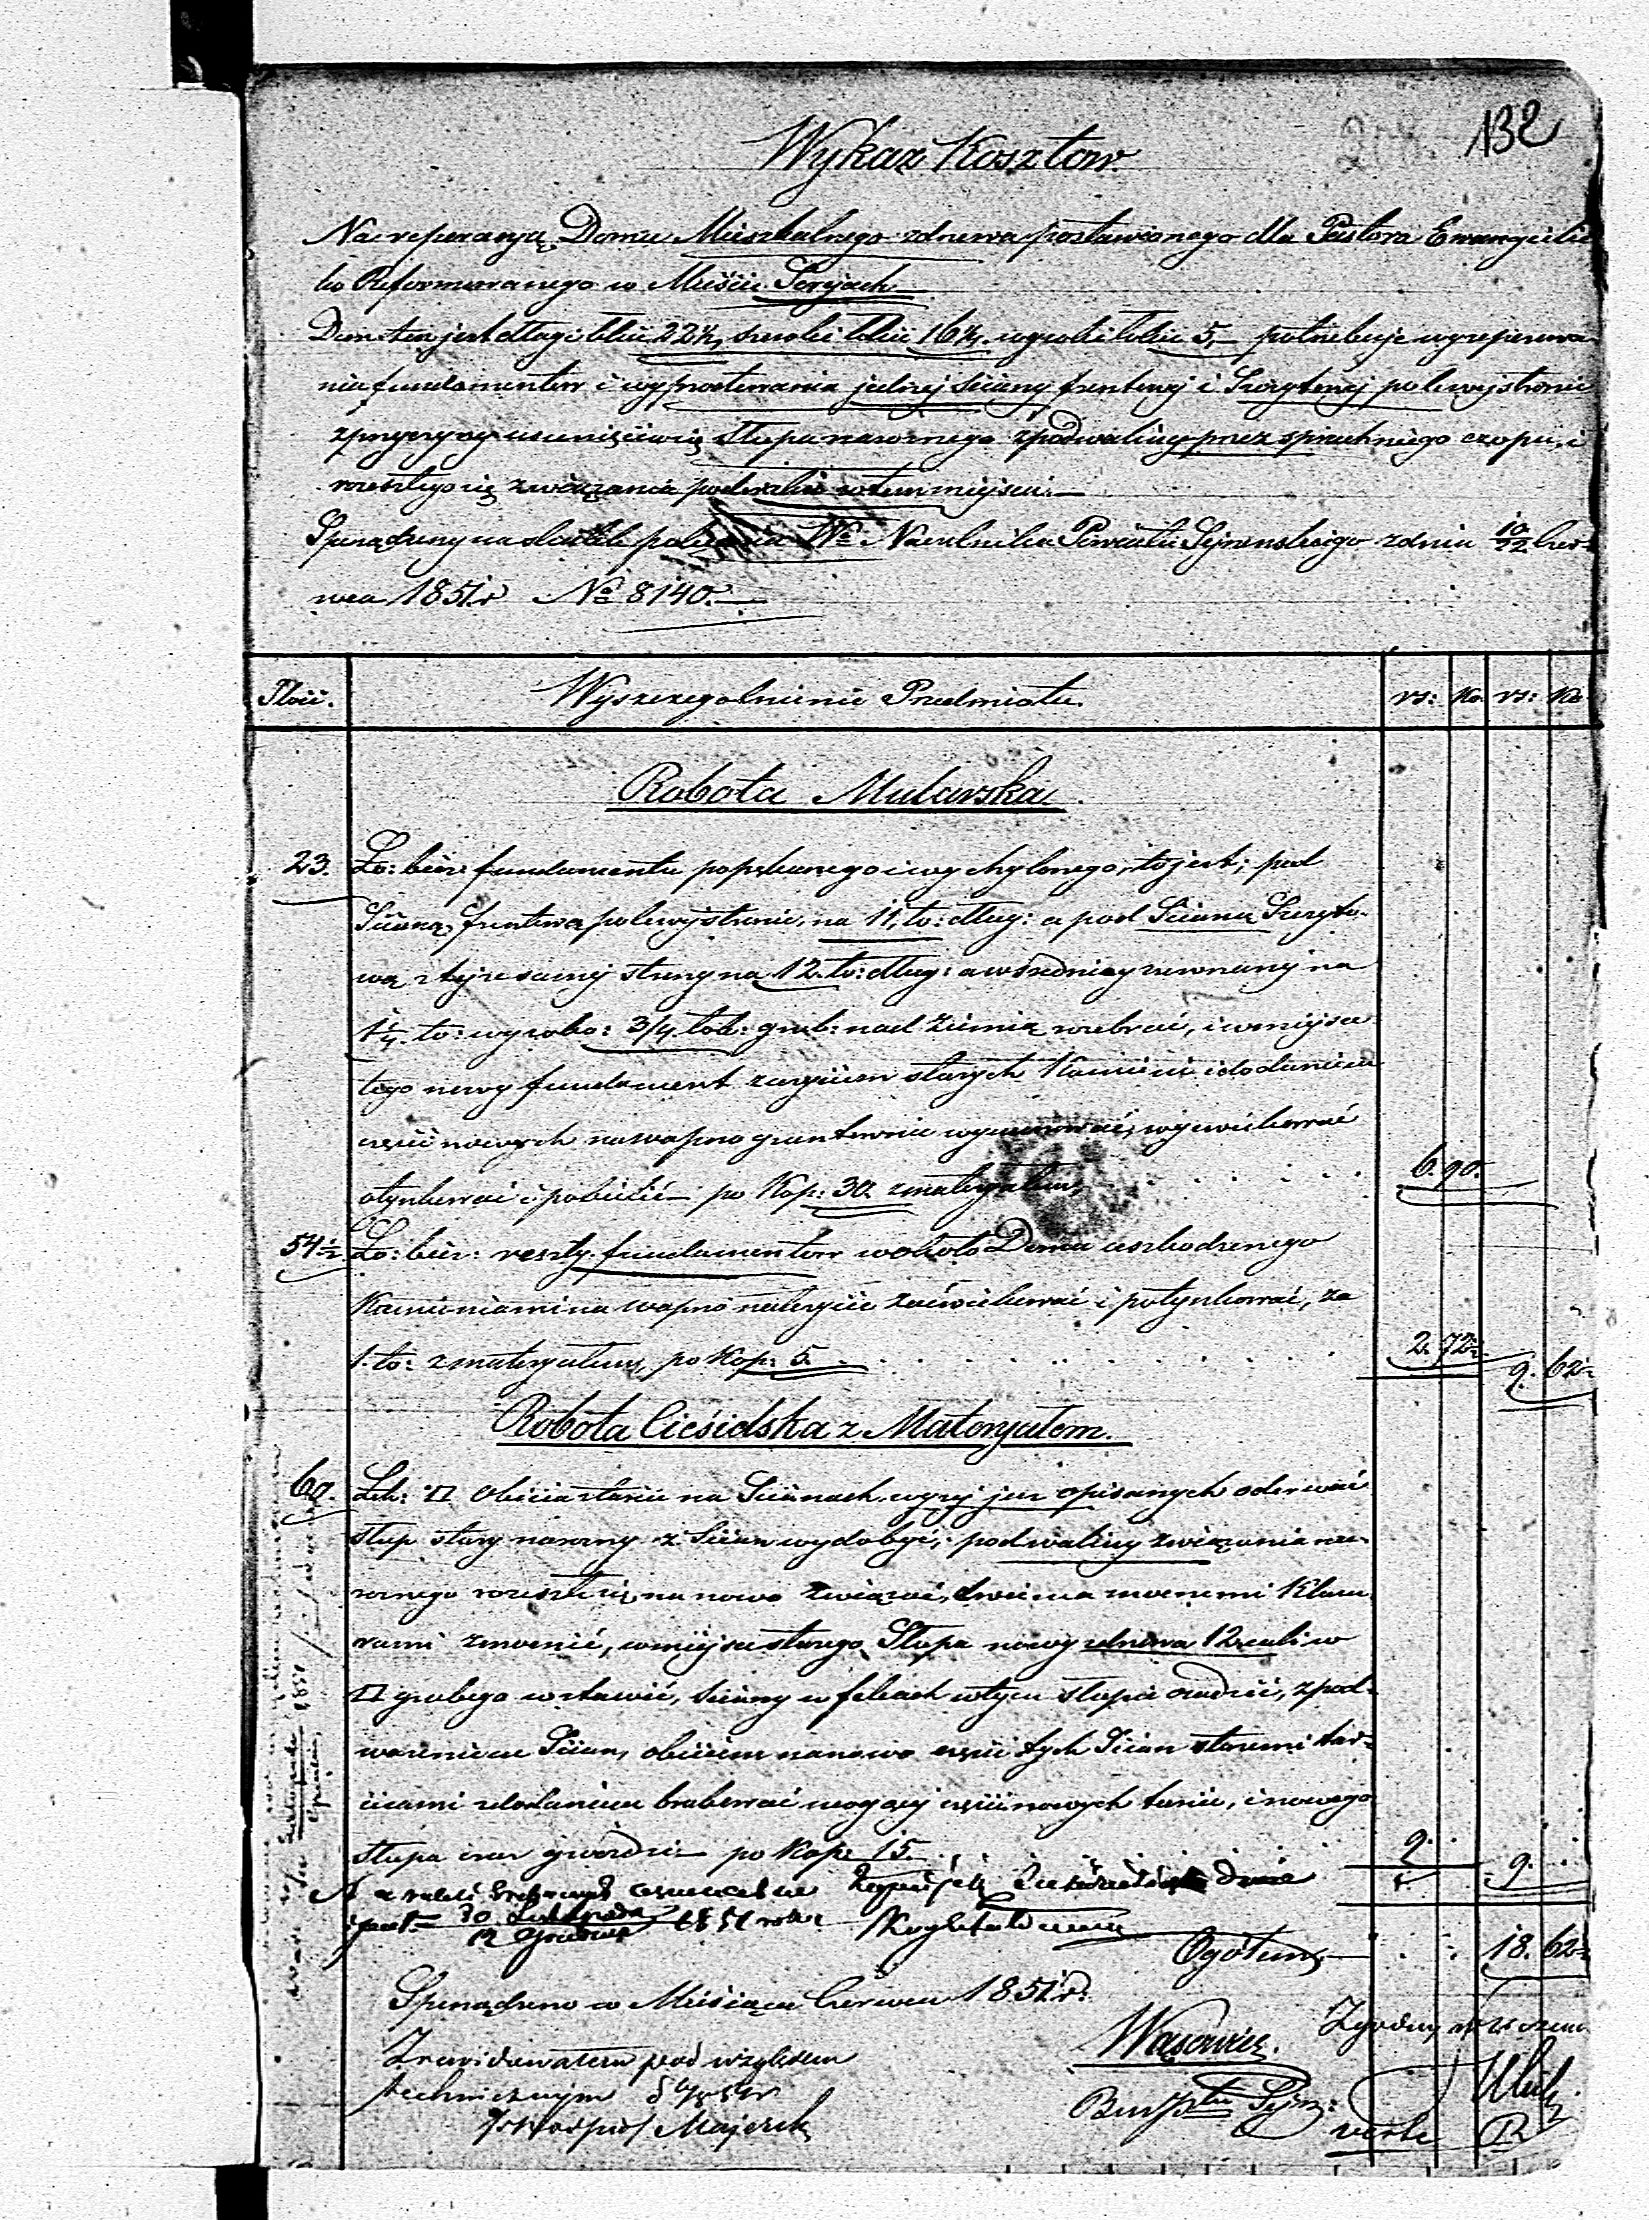 132
Wykaz Kosztow.
Na reperacyą Domu Mieszkalnego z drzewa postawionego dla Pastora Ewangielic
ko Reformowanego w Mieście Serejach
Dom ten jest długi łokci 22½, szeroki łokci 16¼, wysoki łokci 5,— potrzebuje wyreperowa
nia fundamentow i wyprostowania jednej Sciany frontowej i Szczytowej po lewej stronie
z przyczyny usunięcia się Słupa narożnego z podwaliny przez spruchniego czopu, i
rozeszłego się związania podwalin w tem miejscu.—
Sporządzony na skutek polecenia Wo Naczelnika Powiatu Sejneńskiego z dnia 10/22 Czer-
wca 1851 r No 8140.—
Ilość. Wyszczegolnienie Przedmiotu. rs: Ko rs: Ko
Robota Mularska.
23. Ło: bież: fundamentu popsutego i wychylonego, to jest; pod
Scianą frontową po lewej stronie, na 11, ło: dług: a pod Scianą Szczyto-
wą z tejże samej strony na 12. ło: dług: a w średniej zrownanej na
1¼ ło: wysoko: 3/4 łok: grub: nad ziemią rozebrać, i w miejsce
tego nowy fundament z użyciem starych Kamieni i dodaniem
części nowych na wapno gruntownie wymurować, wyćwiekować
otynkować i pobielić — po Kop: 30. z materyałem, 6. 90.
54½ Ło: bież: reszty fundamentow wokoło Domu uszkodzonego
Kamieniami na wapno należycie zaćwiekować i potynkować, za
1. ło: z materyałem, po Kop: 5. 2. 72½ 9. 62½
Robota Ciesielska z Materyałem.
60. Łok: □ Obicia starie na Scianach wyżej już opisanych oderwać
słup stary narożny z Scian wydobyć, podwaliny związania na-
rożnego rozeszłe się na nowo związać, dwiema mocnemi Klam
rami zmocnić, w miejsce starego Słupa nowy z drzewa 12 cali w
□ grubego wstawić, Sciany w felcach w tym słupie osadzić, z pod-
ważeniem Scian, obiciem nanowo części tych Scian staremi tar-
cicami z dodaniem brakować mogącej części nowych tarcic, i nowego
słupa oraz gwoździ — po Kop: 15. 9. 9.
30 Listopada
12 Grudnia 1851 roku
Ogółem,— 18. 62½
Sporządzono w Miesiącu Czerwcu 1851 r.
Zrewidowałem pod względem
technicznym
Majerski
Wąsowicz.
Bur
Zgodny
verte